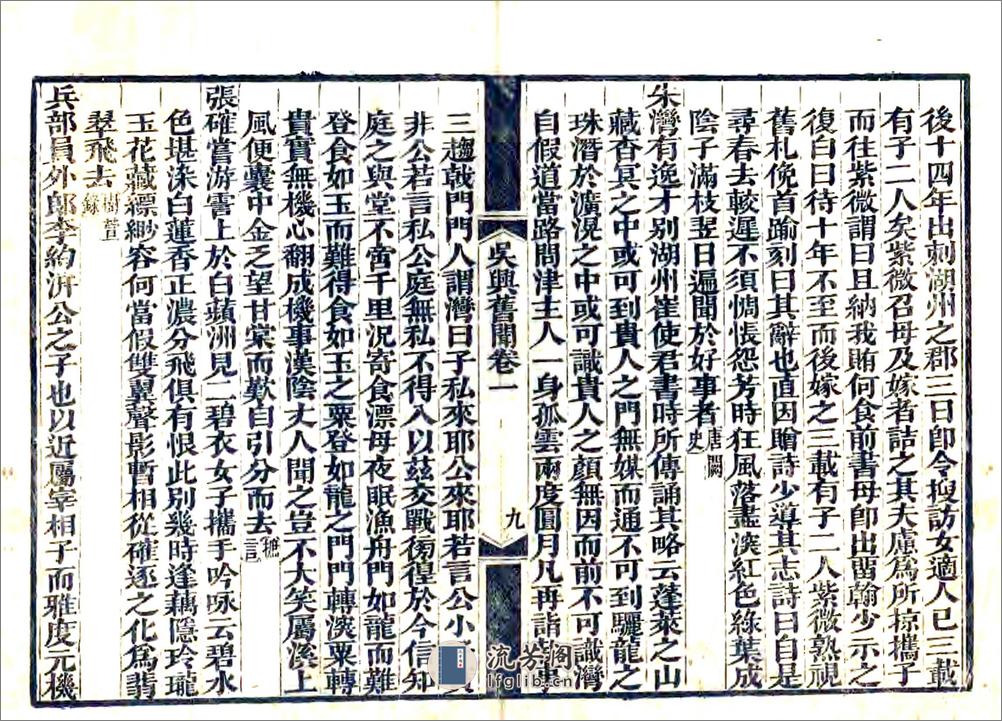 後十四年出刺湖州之郡三日卽令搜訪女適人已三載
有子二人矣紫微召母及嫁者詰之其夫慮爲所掠攜子
而往紫微謂曰且納我賄何食前書母卽出畱翰少示之
復白曰待十年不至而後嫁之三載有子二人紫微熟視
舊札俛首踰刻曰其辭也直因贈詩少導其志詩曰自是
尋春去較遲不須惆悵怨芳時狂風落盡深紅色綠葉成
陰子滿枝翌日遍聞於好事者唐闕史
朱灣有逸才別湖州崔使君書時所傳誦其略云蓬萊之山
藏杳冥之中或可到貴人之門無媒而通不可到驪龍之
珠潛於瀇滉之中或可識貴人之顏無因而前不可識灣
自假道當路問津主人一身孤雲兩度圓月凡再詣
吳興舊聞卷一
九
三趨戟門門人謂灣曰子私來耶公來耶若言公小
非公若言私公庭無私不得入以茲交戰徬徨於今信知
庭之與堂不啻千里況寄食漂母夜眠漁舟門如龍而難
登食如玉而難得食如玉之粟登如龍之門門轉深粟轉
貴實無機心翻成機事漢陰丈人聞之豈不大笑屬溪上
風便囊中金乏望甘棠而歎自引分而去摭言
張確嘗游霅上於白蘋洲見二碧衣女子攜手吟咏云碧水
色堪染白蓮香正濃分飛俱有恨此別幾時逢藕隱玲瓏
玉花藏縹緲容何當假雙翼聲影暫相從確逐之化爲翡
翠飛去樹萱錄
兵部員外郎李約汧公之子也以近屬宰相子而雅度元機
流芳閣
lfglib.cn